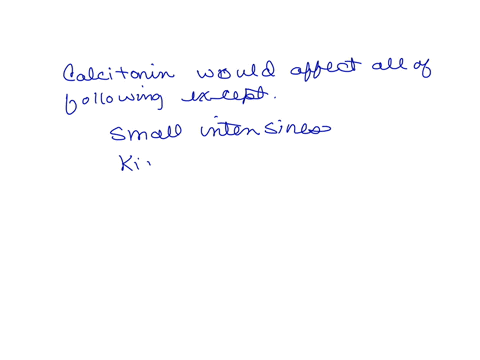 Calcitonin would affect all of
following except.
small intensiness
Ki